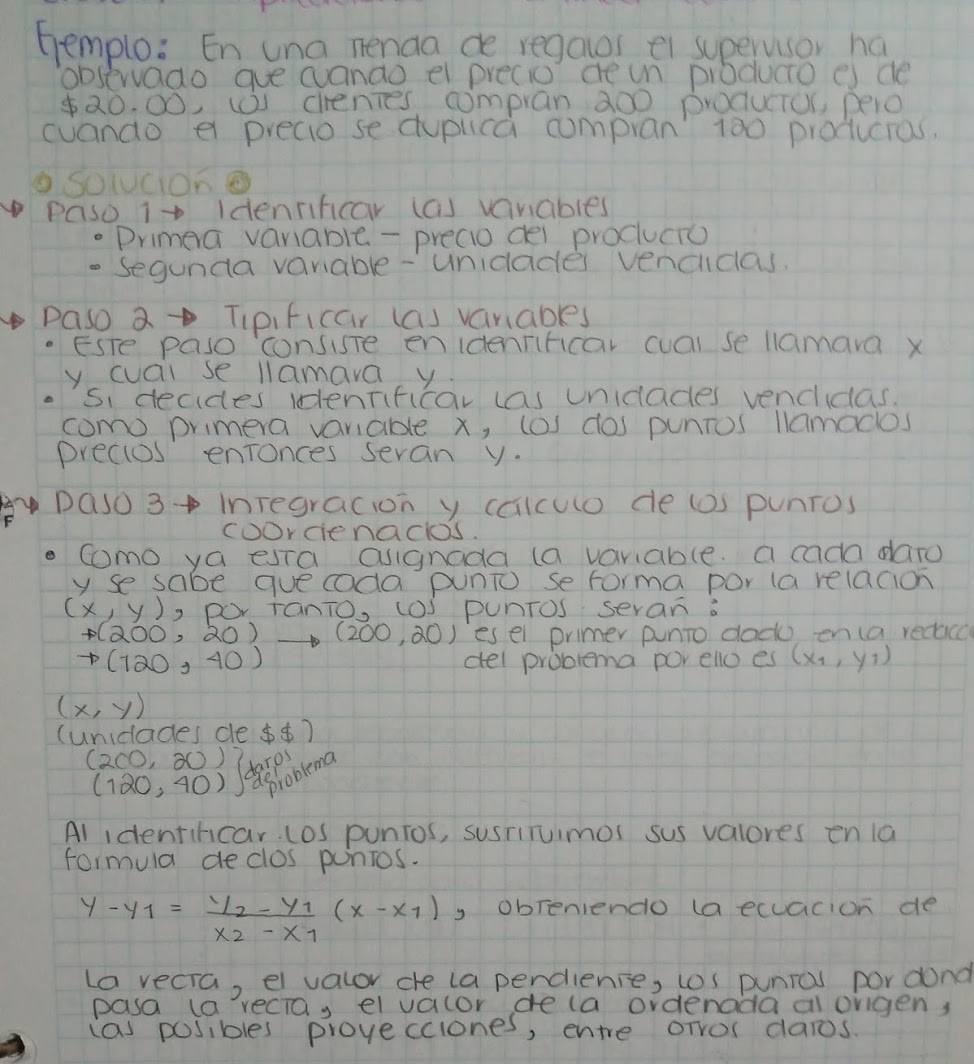 Ejemplo: En una tienda de regalos el supervisor ha
observado que cuando el precio de un producto es de
$20.00, los clientes compran 200 productos, pero
cuando el precio se duplica compran 120 productos.
Solución
Paso 1→ Identificar las variables
• Primera variable - precio del producto
• segunda variable - unidades vendidas.
Paso 2 → Tipificar las variables
• Este paso consiste en identificar cual se llamara x
y cual se llamara y.
• Si decides identificar las unidades vendidas.
como primera variable x, los dos puntos llamados
precios entonces seran y.
Paso 3 → Integración y cálculo de los puntos
coordenados.
• Como ya esta asignada la variable. a cada dato
y se sabe que cada punto se forma por la relación
(x, y), por tanto, los puntos serañ:
→(200, 20) → (200, 20) es el primer punto dado en la redacc
→(120, 40) del problema por ello es (x1, y1)
(x, y)
(unidades de $$)
(200, 20) } datos
(120, 40) } de problema
Al identificar los puntos, sustituimos sus valores en la
formula de dos puntos.
y - y1 = y2 - y1 / x2 - x1 (x - x1), obteniendo la ecuación de
la recta, el valor de la pendiente, los puntos por dond
pasa la recta, el valor de la ordenada al origen,
las posibles proyecciones, entre otros datos.